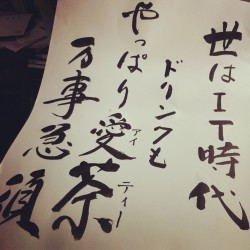 世はIT時代
ドリンクも
やっぱり愛茶
アイティー
万事急須